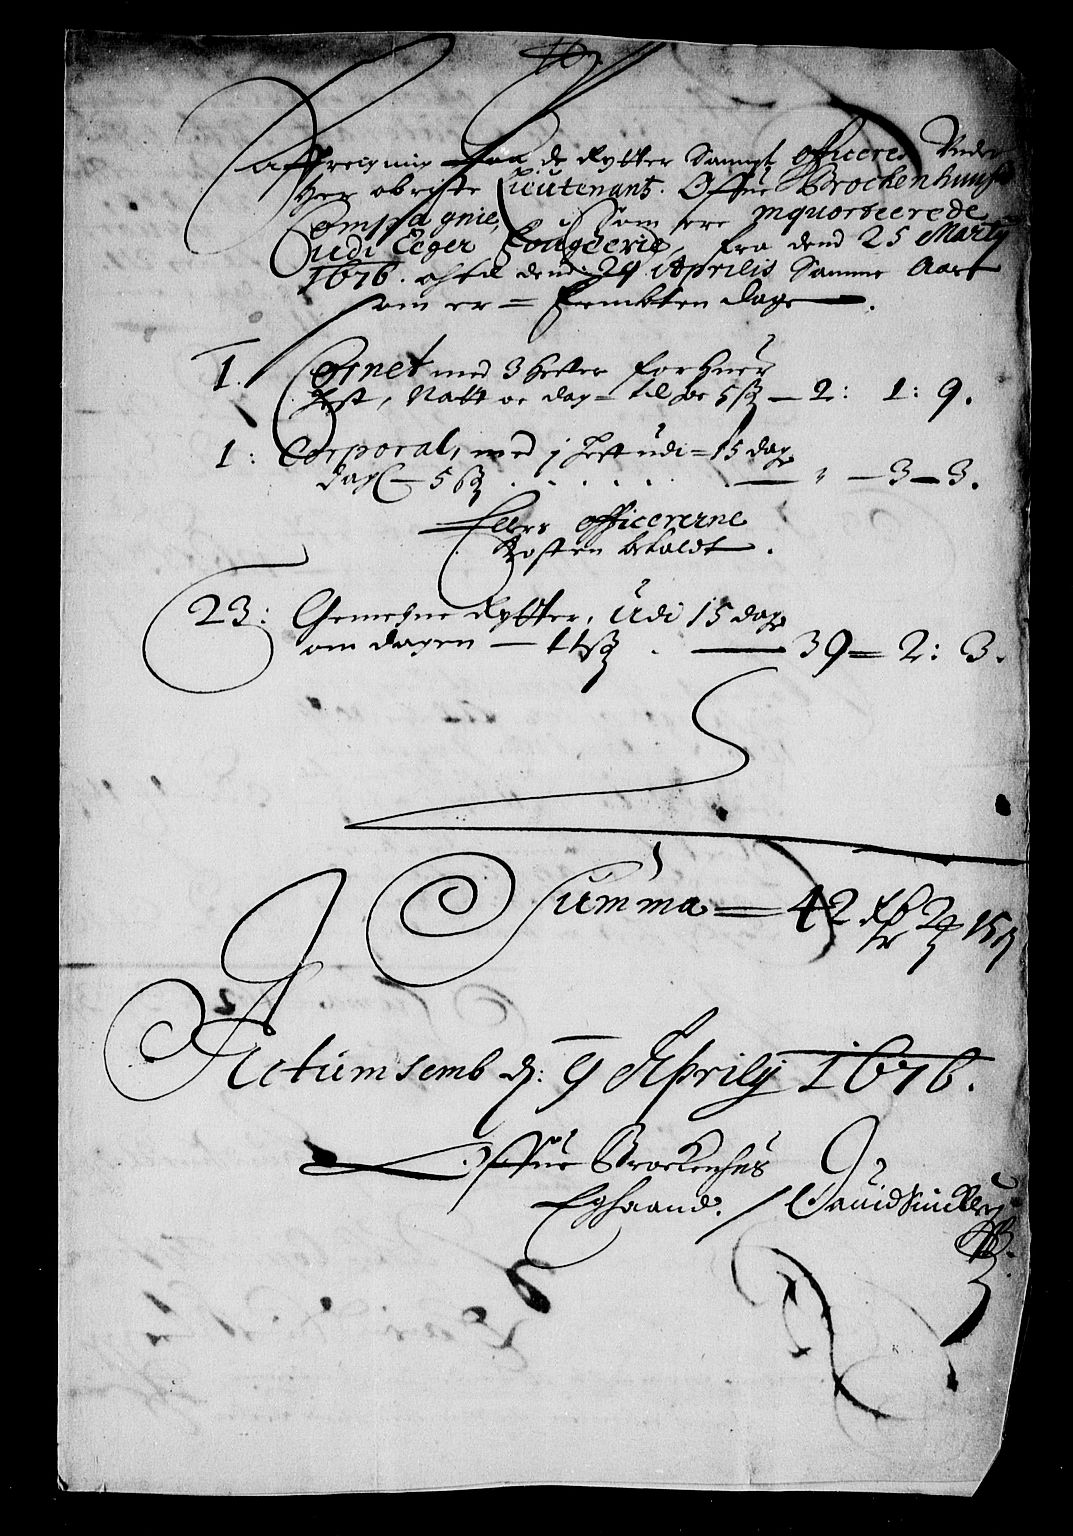 Affreigning paa de Rytter Sampt officerer Under
Her obriste Lieutenant. Offue Brockenhuuses
Compagnie, Som ere Inquorteerede
udi Eeger fougderie, fra dend 25 Marty
1676. och til dend: Aprilis Samme Aars
som er = fembten dage
1. Cornet med 3 hester for huer
Hest, Natt oc dag – til 5 ß — 2: 1: 9.
1: Corporal, med j hest udi = 15 dage
dagl — 5 ß . . . . . . — " — 3 — 3.
Ellers officererne
Kosten betaldt.
23: Gemehne Rytter, Udi 15 dage
om dagen — 11 ß . — 39 = 2: 3.
Summa = 42 Rdr 2 15 ß
Actum semb d: 9 Aprily 1676.
Offue Brockenhus
Eghaand. / Dauid Sincklar